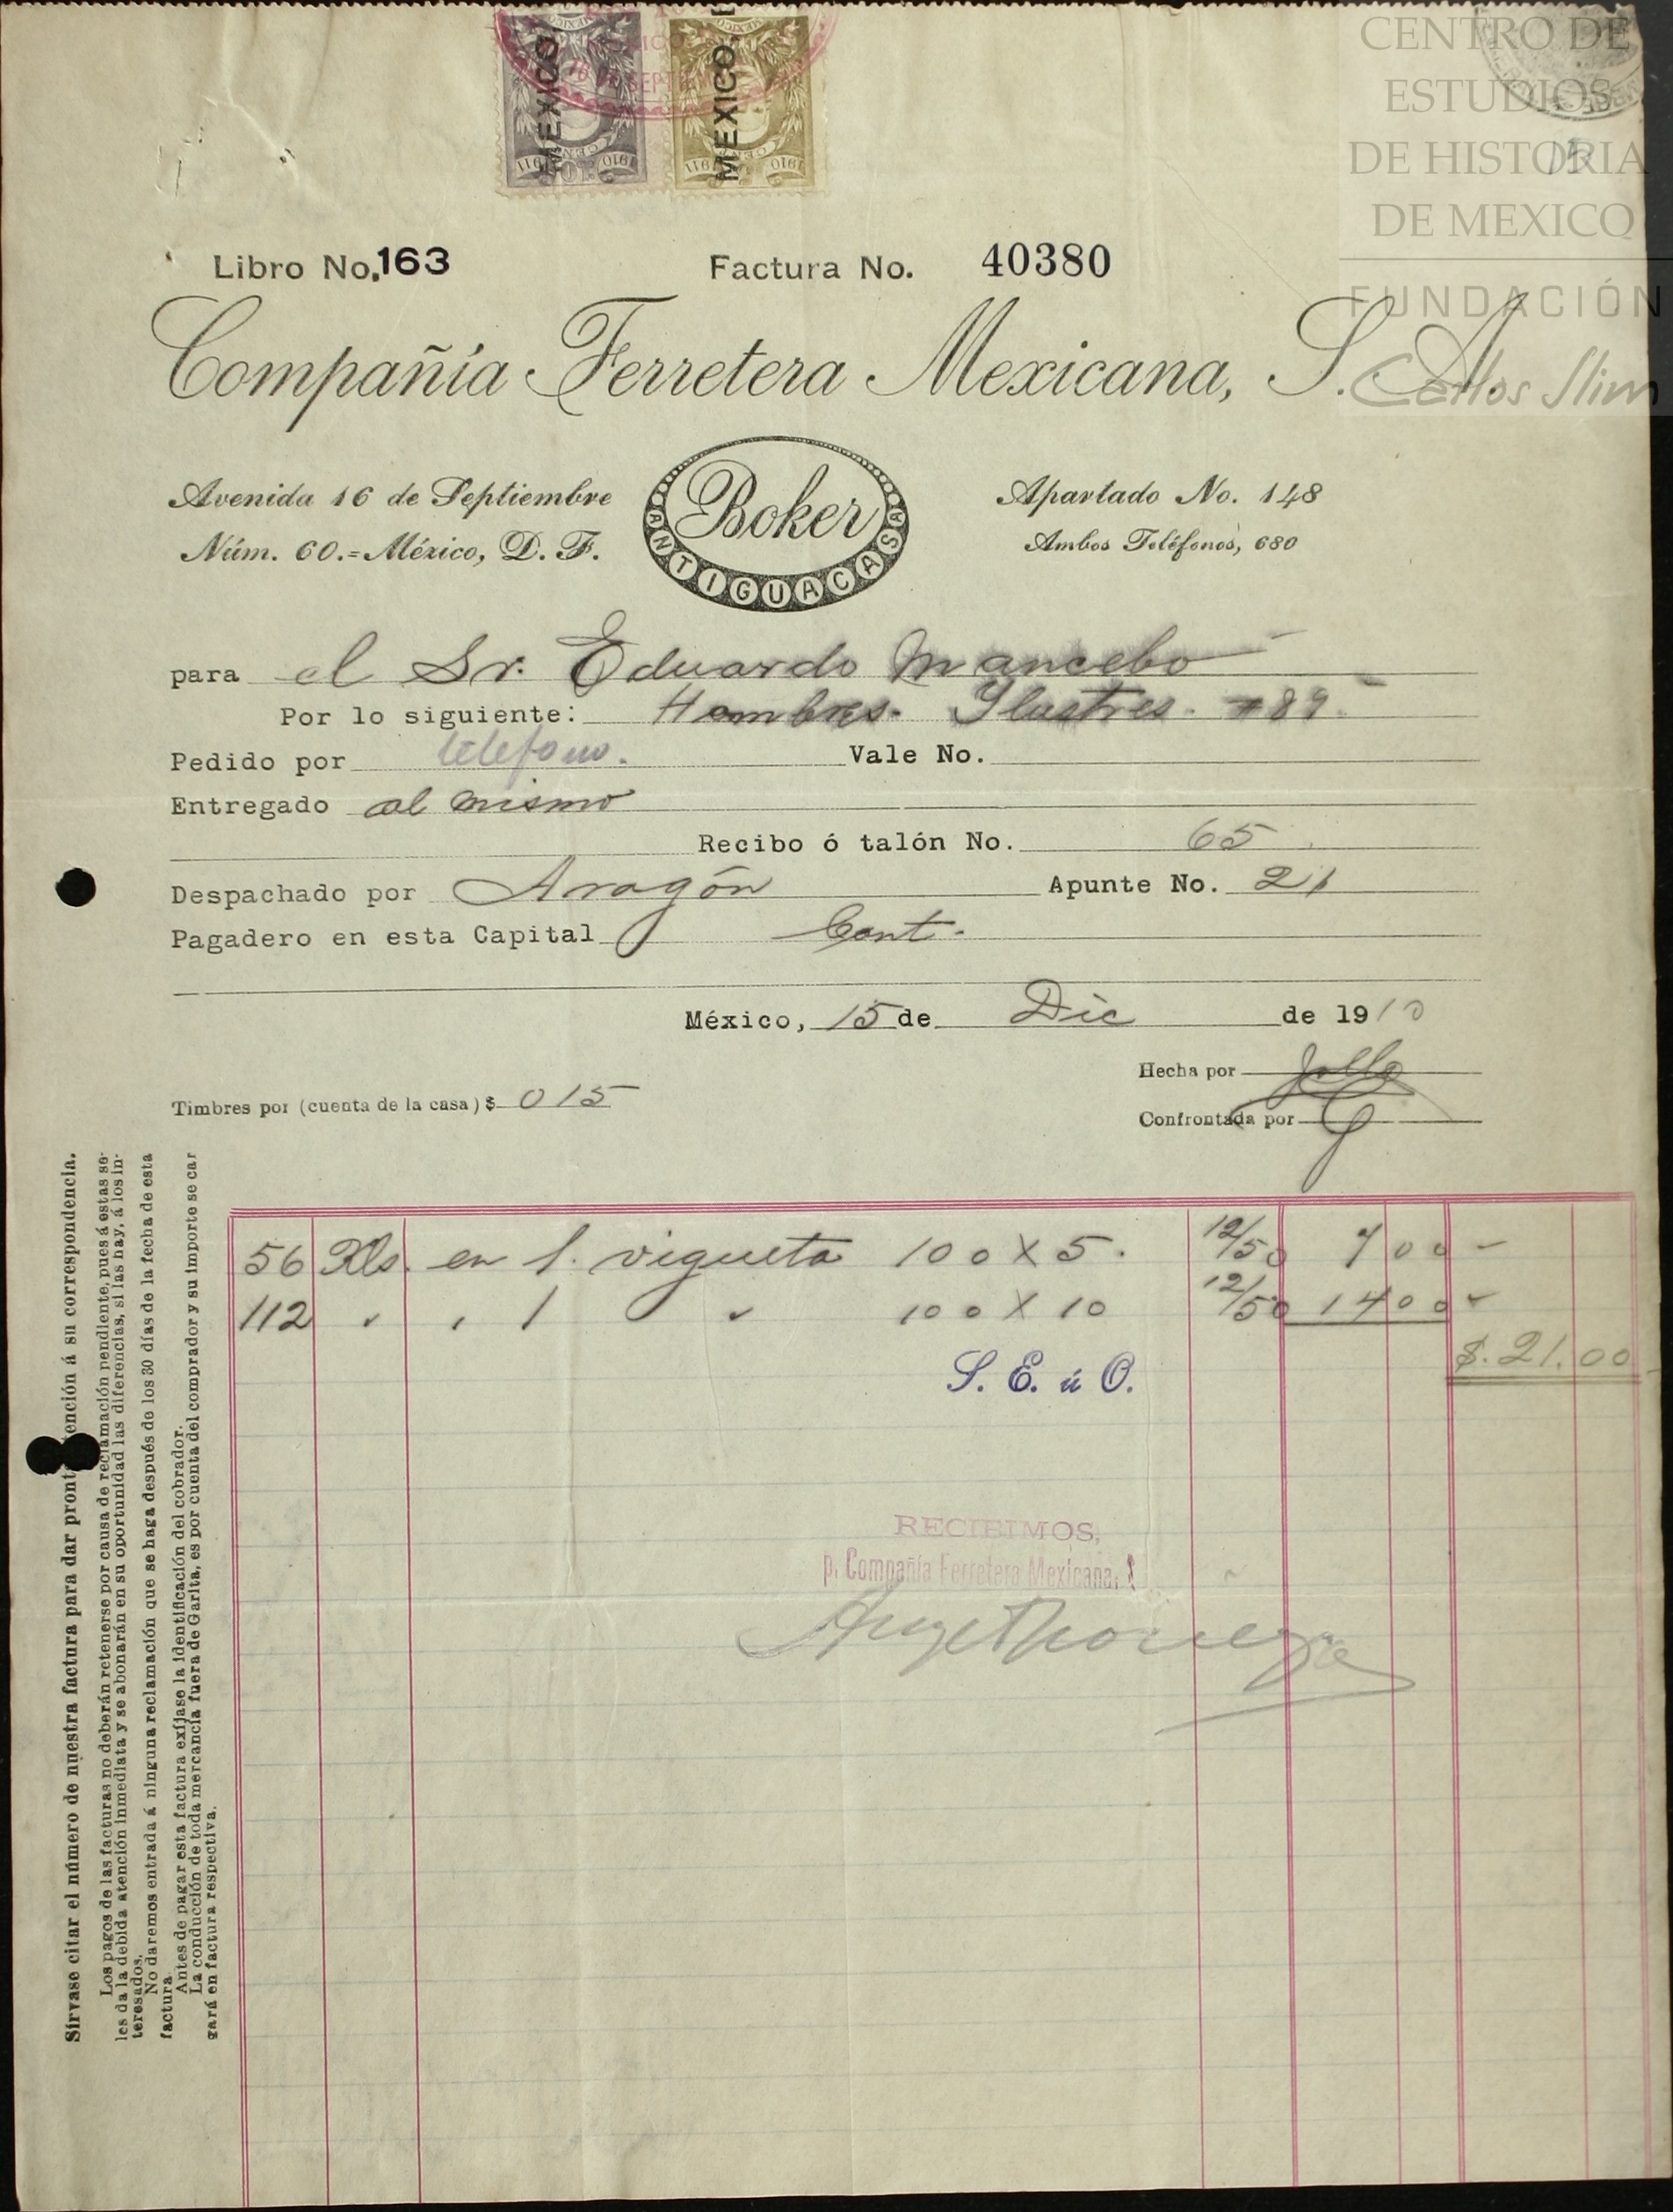 MEXICO MEXICO
1911 1910 1911 1910
CENTRO DE
ESTUDIOS
DE HISTORIA
DE MEXICO
FUNDACIÓN
Carlos Slim
15
Libro No. 163 Factura No. 40380
Compañía Ferretera Mexicana, S. A.
Avenida 16 de Septiembre
Núm. 60.=México, D. F.
Boker
ANTIGUA CASA
Apartado No. 148
Ambos Teléfonos, 680
para el Sr. Eduardo Mancebo
Por lo siguiente: Hombres Ylustres #89
Pedido por telefono. Vale No.
Entregado al mismo
Recibo ó talón No. 65
Despachado por Aragón Apunte No. 21
Pagadero en esta Capital Cont.
México, 15 de Dic de 1910
Hecha por
Timbres por (cuenta de la casa) $ 0 15
Confrontada por
56 Kls. en 1. vigueta 100 X 5. 12/50 7 00 -
112 " " 1 " 100 X 10 12/50 14 00 -
$. 21.00
S. E. ú O.
RECIBIMOS,
p. Compañía Ferretera Mexicana, S
Sírvase citar el número de nuestra factura para dar pronta atención á su correspondencia.
Los pagos de las facturas no deberán retenerse por causa de reclamación pendiente, pues á estas se
les da la debida atención inmediata y se abonarán en su oportunidad las diferencias, si las hay, á los in-
teresados.
No daremos entrada á ninguna reclamación que se haga después de los 30 días de la fecha de esta
factura
Antes de pagar esta factura exíjase la identificación del cobrador.
La conducción de toda mercancía fuera de Garita, es por cuenta del comprador y su importe se car
gará en factura respectiva.